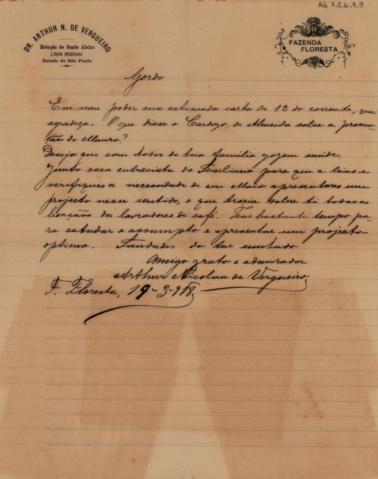 AG 1.2.6.1.9
DR. ARTHUR N. DE VERGUEIRO
Estação de Santo Aleixo
LINHA MOGYANA
Estado de São Paulo
FAZENDA
FLORESTA
Gordo
Em meu poder sua estimada carta de 12 do corrente, que
agradeço. O que disse o Cardozo de Almeida sobre a
do Mauro?
Desejo que com todos de tua familia gozem saúde.
Junto essa entrevista do para que a leias e
verifiques a necessidade de em apresentares um
projecto nesse sentido, o que traria sobre ti todas as
bençãos dos lavradores de café. Tens bastante tempo pa
ra estudar o assumpto e apresentar um projecto
optimo. Saudades do teu
amigo grato e admirador
Arthur Nicolau de Vergueiro
F. Floresta, 19-3-918